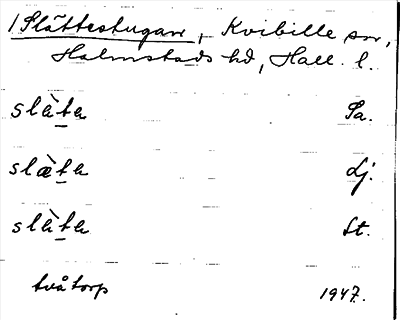 /Slättestugan, Kvibille sn,
Halmstads hd, Hall. l.
slàta Sa.
slæ̀ta Lj.
slàta St.
två torp 1947.